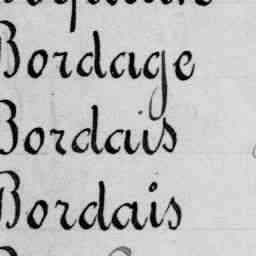 Bordage
Bordais
Bordais